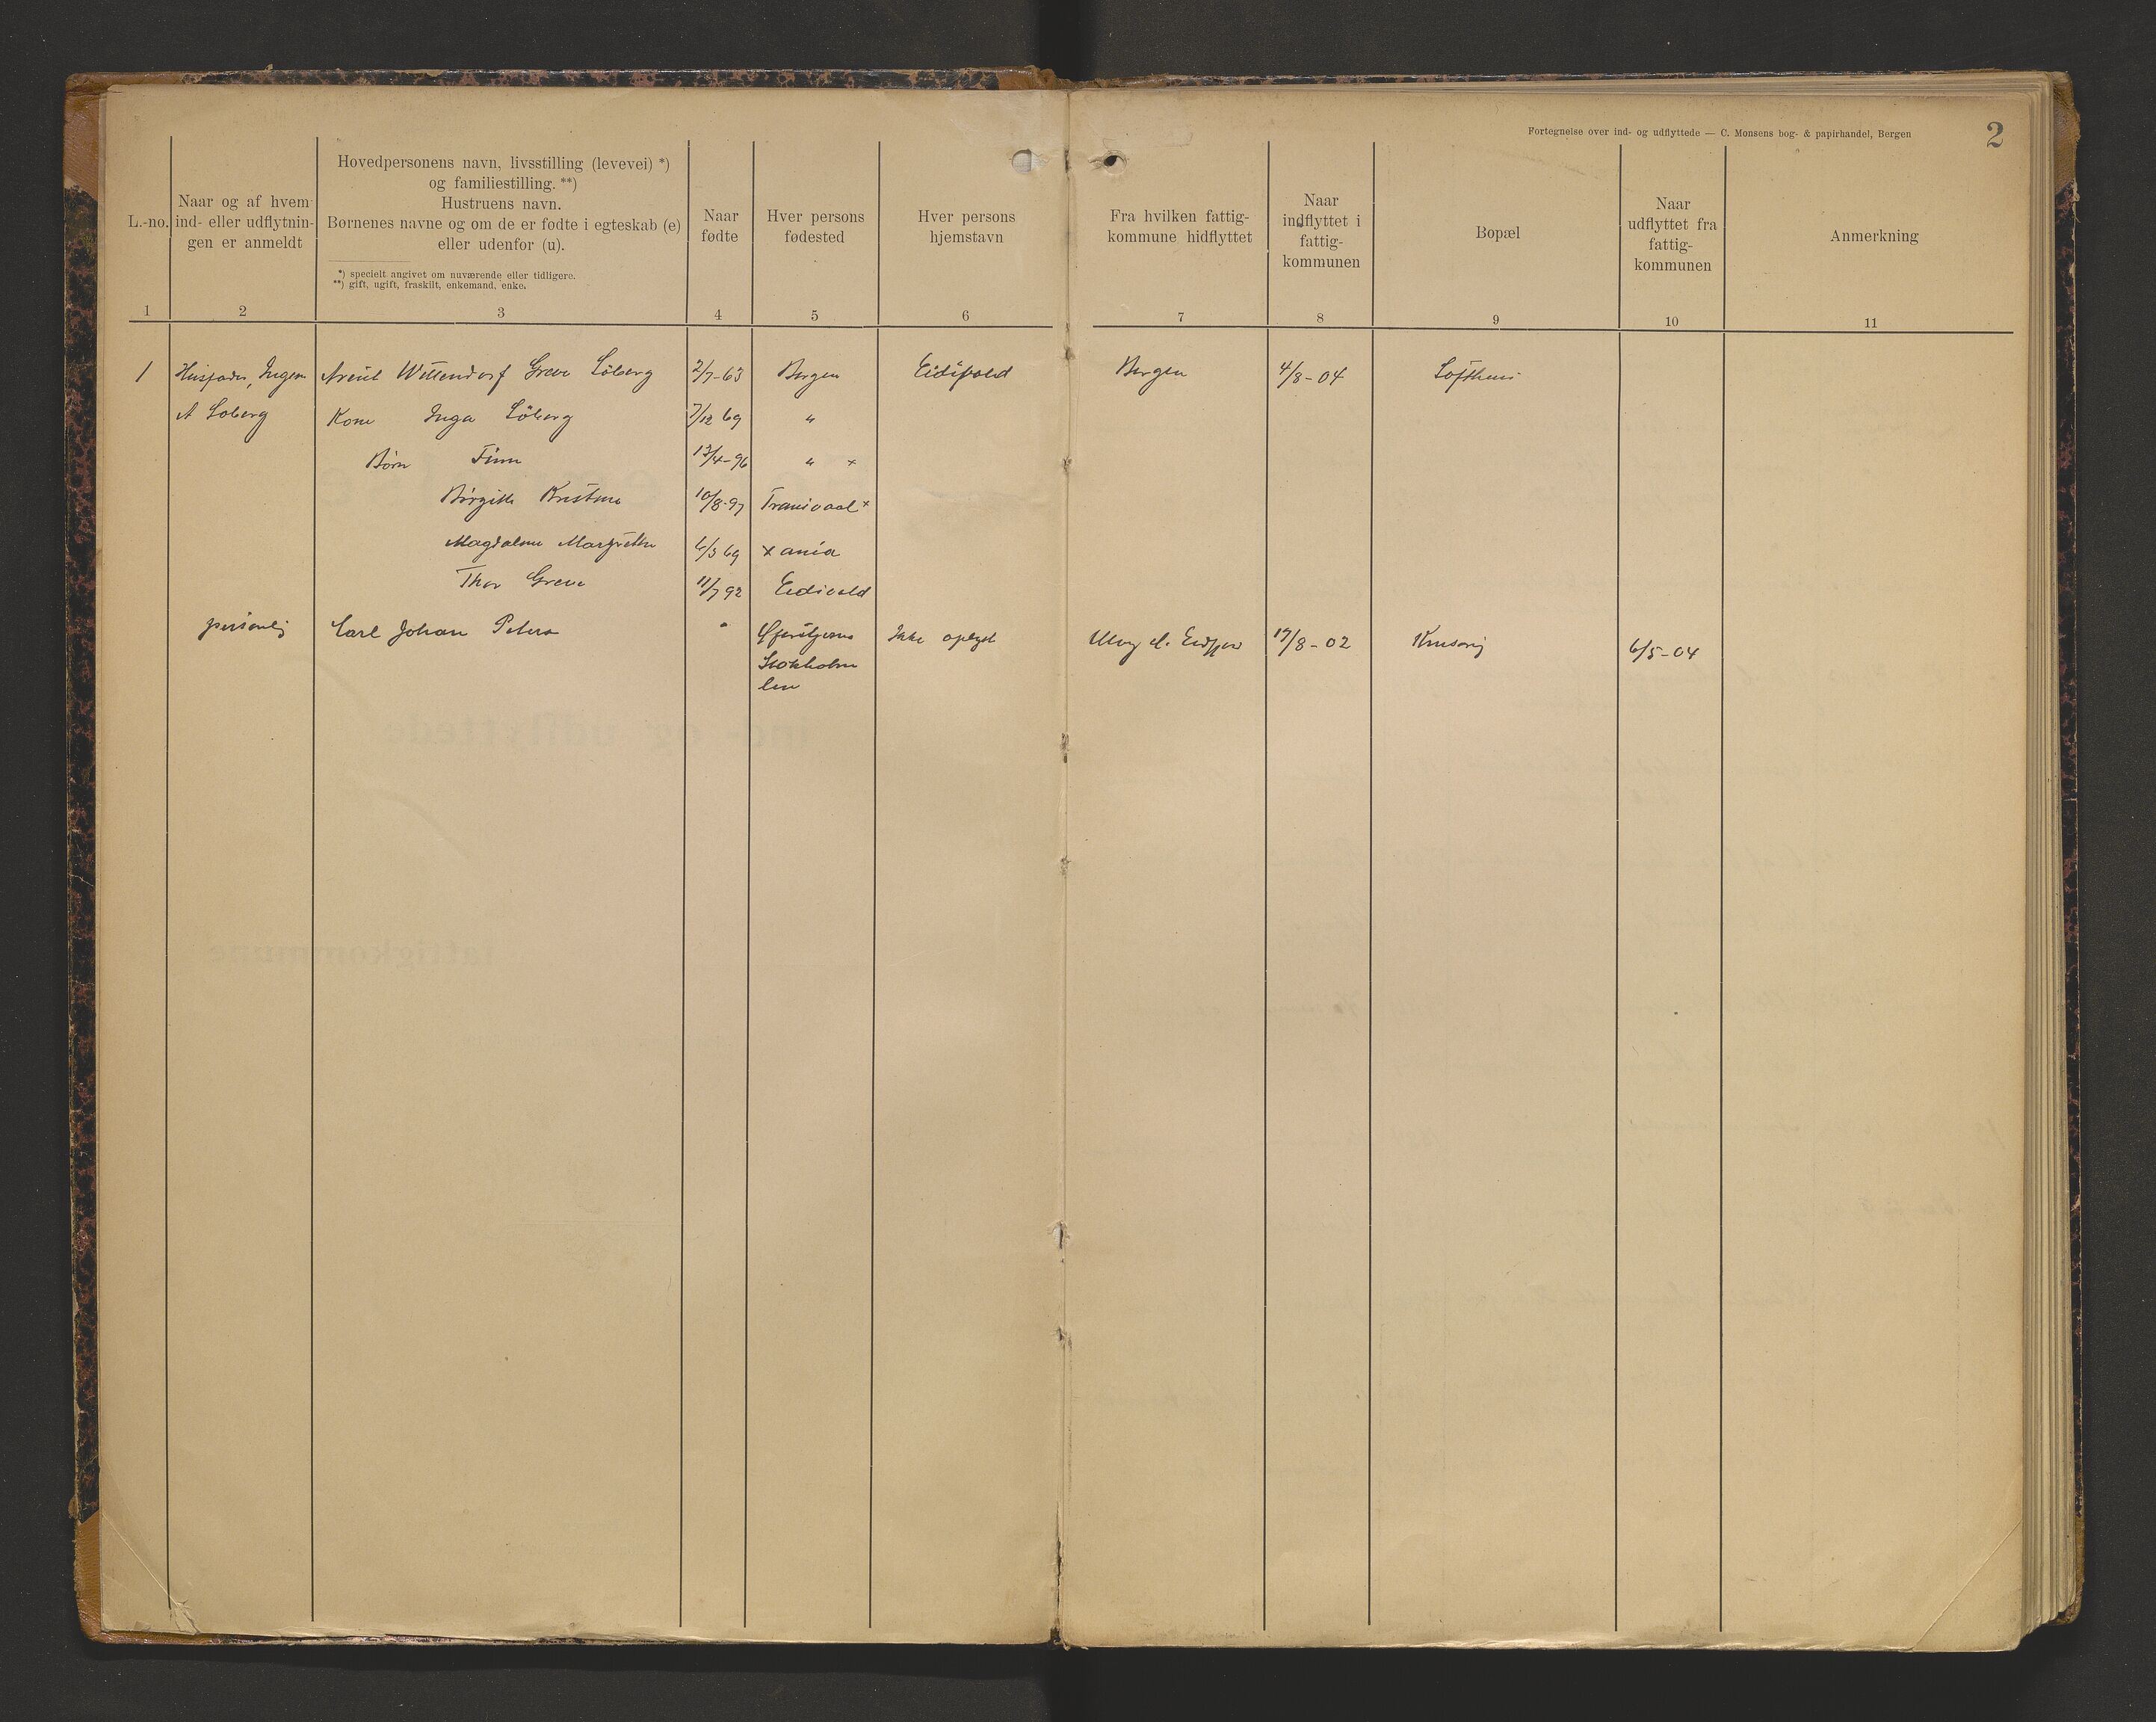 Fortegnelse over ind- og udflyttede — C. Monsens bog- & papirhandel, Bergen
2
L.-no.
Naar og af hvem
ind- eller udflytnin-
gen er anmeldt
Hovedpersonens navn, livsstilling (levevei) *)
og familiestilling. **)
Hustruens navn.
Børnenes navne og om de er fødte i egteskab (e)
eller udenfor (u).
*) specielt angivet om nuværende eller tidligere.
**) gift, ugift, fraskilt, enkemand, enke.
Naar
fødte
Hver persons
fødested
Hver persons
hjemstavn
Fra hvilken fattig-
kommune hidflyttet
Naar
indflyttet i
fattig-
kommunen
Bopæl
Naar
udflyttet fra
fattig-
kommunen
Anmerkning
1 2 3 4 5 6 7 8 9 10 11
1 Husfader, Ingen Wittendorf Greve Löberg 2/7-63 Bergen Eidsvold Bergen 4/8-04 Lofthus
A Loberg Kone Inga Löberg 7/12 69 "
Börn Finn 13/4-96 " x
Birgitte Kristine 10/8-97 Transvaal x
Magdalene Margrethe 6/3 69 xania
Thor Greve 11/7 92 Eidsvold
personlig Carl Johan Peters " Ikke oplyst Ulvig d. 17/8-02 6/5-04
Stokholm
len